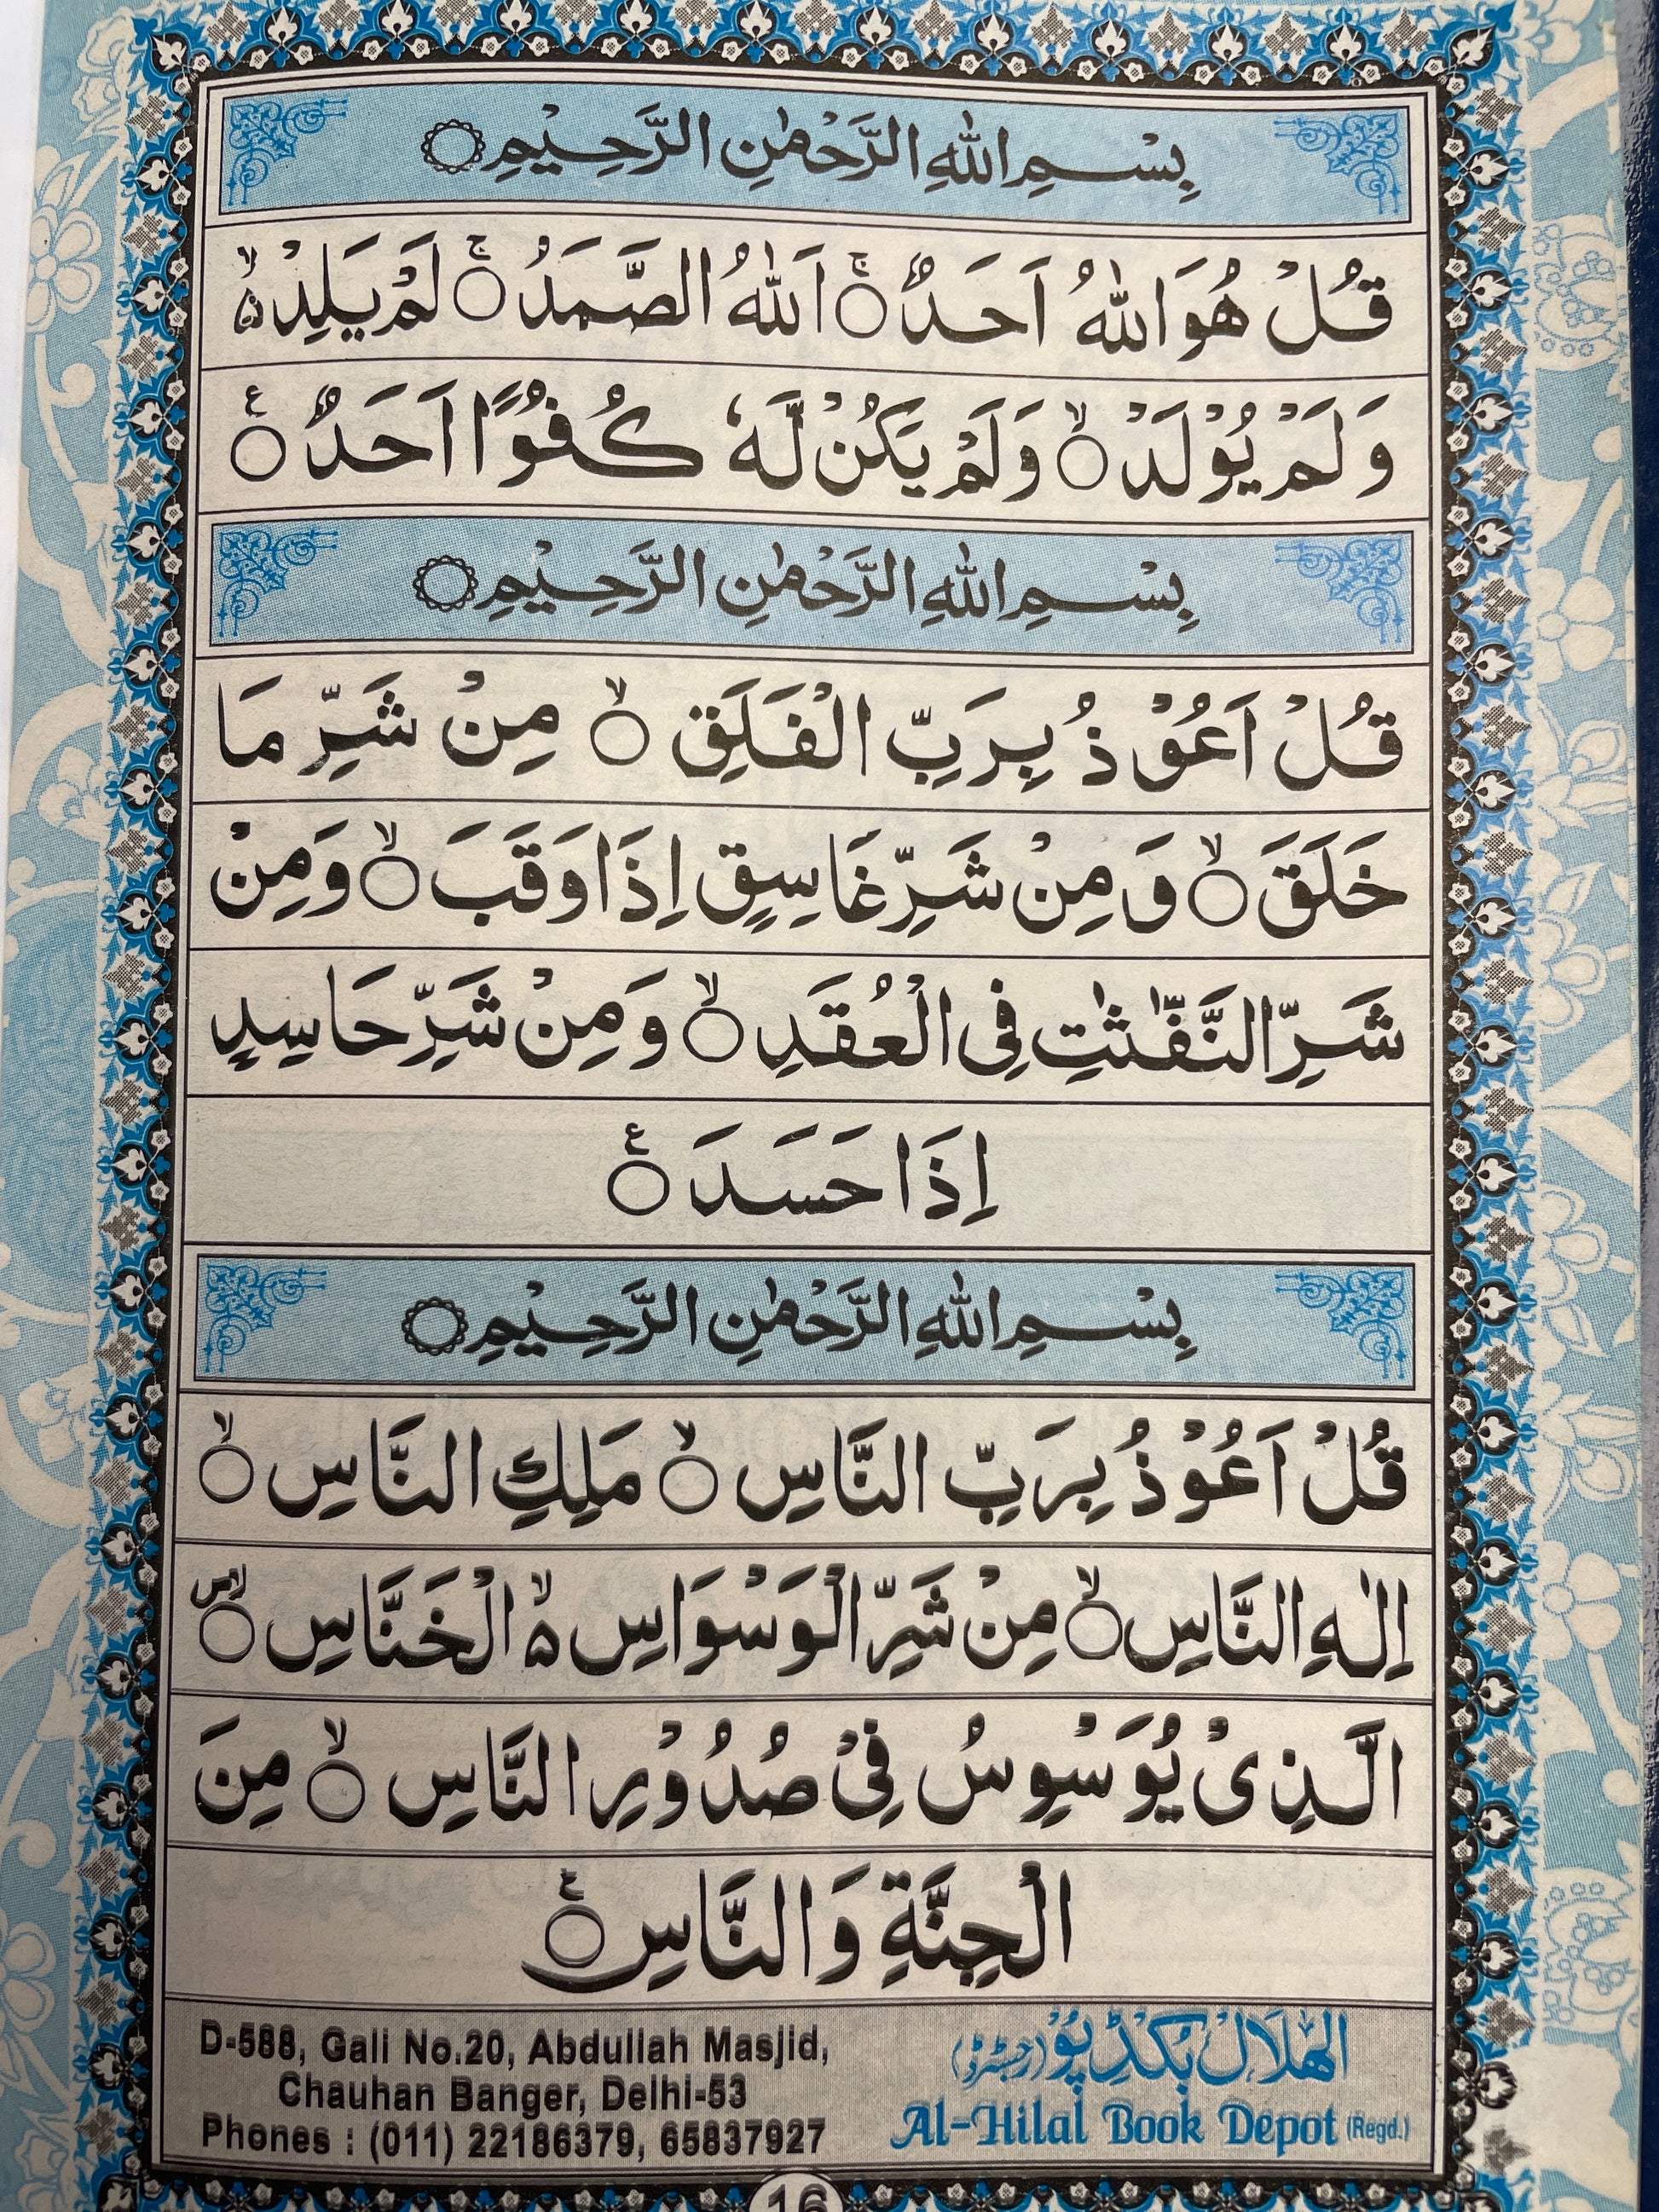 بِسْمِ اللهِ الرَّحْمٰنِ الرَّحِيْمِ○
قُلْ هُوَ اللهُ اَحَدٌ○ۚ اَللهُ الصَّمَدُ○ۚ لَمْ يَلِدْ۬ۙ
وَلَمْ يُوْلَدْ○ۙ وَلَمْ يَكُنْ لَّهٗ كُفُوًا اَحَدٌ○ۧ
بِسْمِ اللهِ الرَّحْمٰنِ الرَّحِيْمِ○
قُلْ اَعُوْذُ بِرَبِّ الْفَلَقِ○ۙ مِنْ شَرِّ مَا
خَلَقَ○ۙ وَمِنْ شَرِّ غَاسِقٍ اِذَا وَقَبَ○ۙ وَمِنْ
شَرِّ النَّفّٰثٰتِ فِى الْعُقَدِ○ۙ وَمِنْ شَرِّ حَاسِدٍ
اِذَا حَسَدَ○ۧ
بِسْمِ اللهِ الرَّحْمٰنِ الرَّحِيْمِ○
قُلْ اَعُوْذُ بِرَبِّ النَّاسِ○ۙ مَلِكِ النَّاسِ○ۙ
اِلٰهِ النَّاسِ○ۙ مِنْ شَرِّ الْوَسْوَاسِ ۵ۙ الْخَنَّاسِ○ۙص
الَّذِىْ يُوَسْوِسُ فِىْ صُدُوْرِ النَّاسِ○ۙ مِنَ
الْجِنَّةِ وَالنَّاسِ○ۧ
D-588, Gali No.20, Abdullah Masjid,
Chauhan Banger, Delhi-53
Phones : (011) 22186379, 65837927
الهلال بکڈپو (رجسٹرڈ)
Al-Hilal Book Depot (Regd.)
16